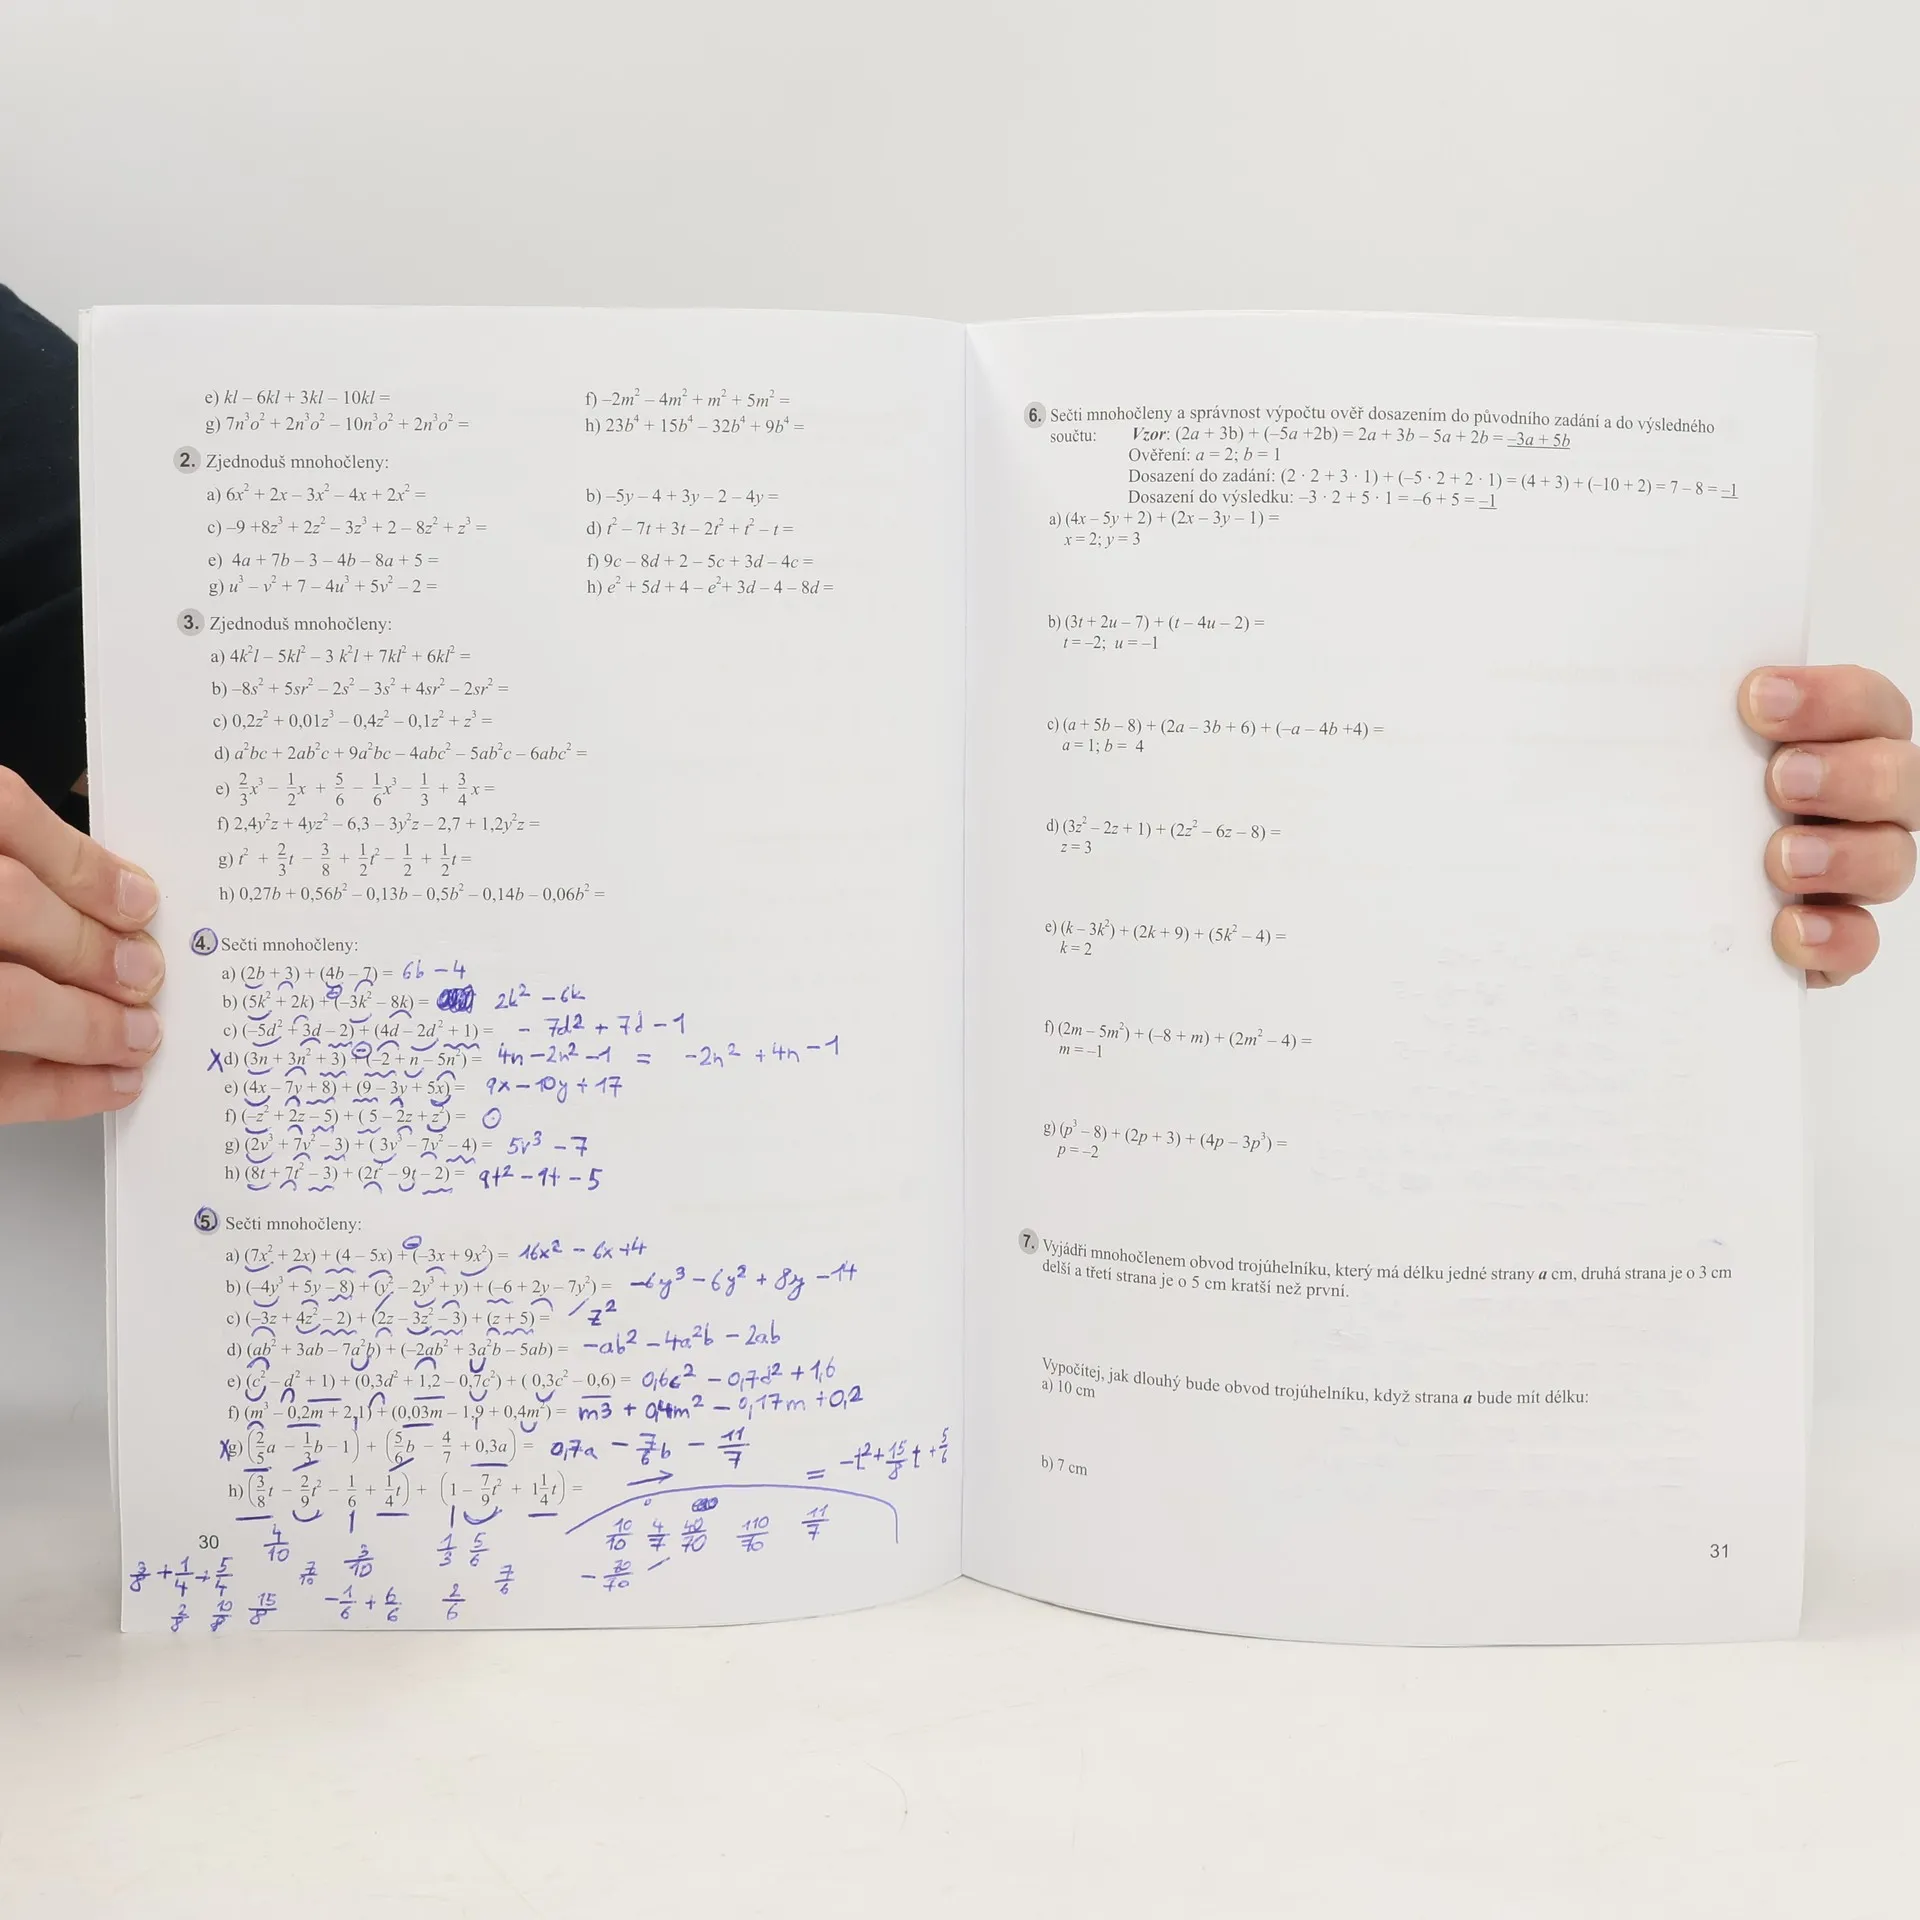 e) kl – 6kl + 3kl – 10kl =
f) –2m² – 4m² + m² + 5m² =
g) 7n³o² + 2n³o² – 10n³o² + 2n³o² =
h) 23b⁴ + 15b⁴ – 32b⁴ + 9b⁴ =
2. Zjednoduš mnohočleny:
a) 6x² + 2x – 3x² – 4x + 2x² =
b) –5y – 4 + 3y – 2 – 4y =
c) –9 +8z³ + 2z² – 3z³ + 2 – 8z² + z³ =
d) t² – 7t + 3t – 2t² + t² – t =
e) 4a + 7b – 3 – 4b – 8a + 5 =
f) 9c – 8d + 2 – 5c + 3d – 4c =
g) u³ – v² + 7 – 4u³ + 5v² – 2 =
h) e² + 5d + 4 – e²+ 3d – 4 – 8d =
3. Zjednoduš mnohočleny:
a) 4k²l – 5kl² – 3 k²l + 7kl² + 6kl² =
b) –8s² + 5sr² – 2s² – 3s² + 4sr² – 2sr² =
c) 0,2z² + 0,01z³ – 0,4z² – 0,1z² + z³ =
d) a²bc + 2ab²c + 9a²bc – 4abc² – 5ab²c – 6abc² =
e) 2/3x³ – 1/2x + 5/6 – 1/6x³ – 1/3 + 3/4x =
f) 2,4y²z + 4yz² – 6,3 – 3y²z – 2,7 + 1,2y²z =
g) t² + 2/3t – 3/8 + 1/2t² – 1/2 + 1/2t =
h) 0,27b + 0,56b² – 0,13b – 0,5b² – 0,14b – 0,06b² =
4. Sečti mnohočleny:
a) (2b + 3) + (4b – 7) = 6b – 4
b) (5k² + 2k) + (–3k² – 8k) = 2k² – 6k
c) (–5d² + 3d – 2) + (4d – 2d² + 1) = – 7d² + 7d – 1
x d) (3n + 3n² + 3) + (–2 + n – 5n²) = 4n – 2n² – 1 = –2n² + 4n – 1
e) (4x – 7y + 8) + (9 – 3y + 5x) = 9x – 10y + 17
f) (–z² + 2z – 5) + ( 5 – 2z + z²) = 0
g) (2v³ + 7v² – 3) + ( 3v³ – 7v² – 4) = 5v³ – 7
h) (8t + 7t² – 3) + (2t² – 9t – 2) = 9t² – 1t – 5
5. Sečti mnohočleny:
a) (7x² + 2x) + (4 – 5x) + (–3x + 9x²) = 16x² – 6x + 4
b) (–4y³ + 5y – 8) + (y² – 2y³ + y) + (–6 + 2y – 7y²) = –6y³ – 6y² + 8y – 14
c) (–3z + 4z² – 2) + (2z – 3z² – 3) + (z + 5) = z²
d) (ab² + 3ab – 7a²b) + (–2ab² + 3a²b – 5ab) = –ab² – 4a²b – 2ab
e) (c² – d² + 1) + (0,3d² + 1,2 – 0,7c²) + ( 0,3c² – 0,6) = 0,6c² – 0,7d² + 1,6
f) (m³ – 0,2m + 2,1) + (0,03m – 1,9 + 0,4m²) = m3 + 0,4m² – 0,17m + 0,2
x g) (2/5a – 1/3b – 1) + (5/6b – 4/7 + 0,3a) = 0,7a – 7/6b – 11/7
h) (3/8t – 2/9t² – 1/6 + 1/4t) + (1 – 7/9t² + 1 1/4t) = = –t² + 15/8t + 5/6
10/10 4/7 40/70 110/70 11/7
– 70/70
30
4/10 7/10 3/10 1/3 5/6 7/6
3/8 + 1/4 + 5/4
2/8 10/8 15/8 –1/6 + 6/6 2/6
6. Sečti mnohočleny a správnost výpočtu ověř dosazením do původního zadání a do výsledného
součtu: Vzor: (2a + 3b) + (–5a +2b) = 2a + 3b – 5a + 2b = –3a + 5b
Ověření: a = 2; b = 1
Dosazení do zadání: (2 · 2 + 3 · 1) + (–5 · 2 + 2 · 1) = (4 + 3) + (–10 + 2) = 7 – 8 = –1
Dosazení do výsledku: –3 · 2 + 5 · 1 = –6 + 5 = –1
a) (4x – 5y + 2) + (2x – 3y – 1) =
x = 2; y = 3
b) (3t + 2u – 7) + (t – 4u – 2) =
t = –2; u = –1
c) (a + 5b – 8) + (2a – 3b + 6) + (–a – 4b +4) =
a = 1; b = 4
d) (3z² – 2z + 1) + (2z² – 6z – 8) =
z = 3
e) (k – 3k²) + (2k + 9) + (5k² – 4) =
k = 2
f) (2m – 5m²) + (–8 + m) + (2m² – 4) =
m = –1
g) (p³ – 8) + (2p + 3) + (4p – 3p³) =
p = –2
7. Vyjádři mnohočlenem obvod trojúhelníku, který má délku jedné strany a cm, druhá strana je o 3 cm
delší a třetí strana je o 5 cm kratší než první.
Vypočítej, jak dlouhý bude obvod trojúhelníku, když strana a bude mít délku:
a) 10 cm
b) 7 cm
31